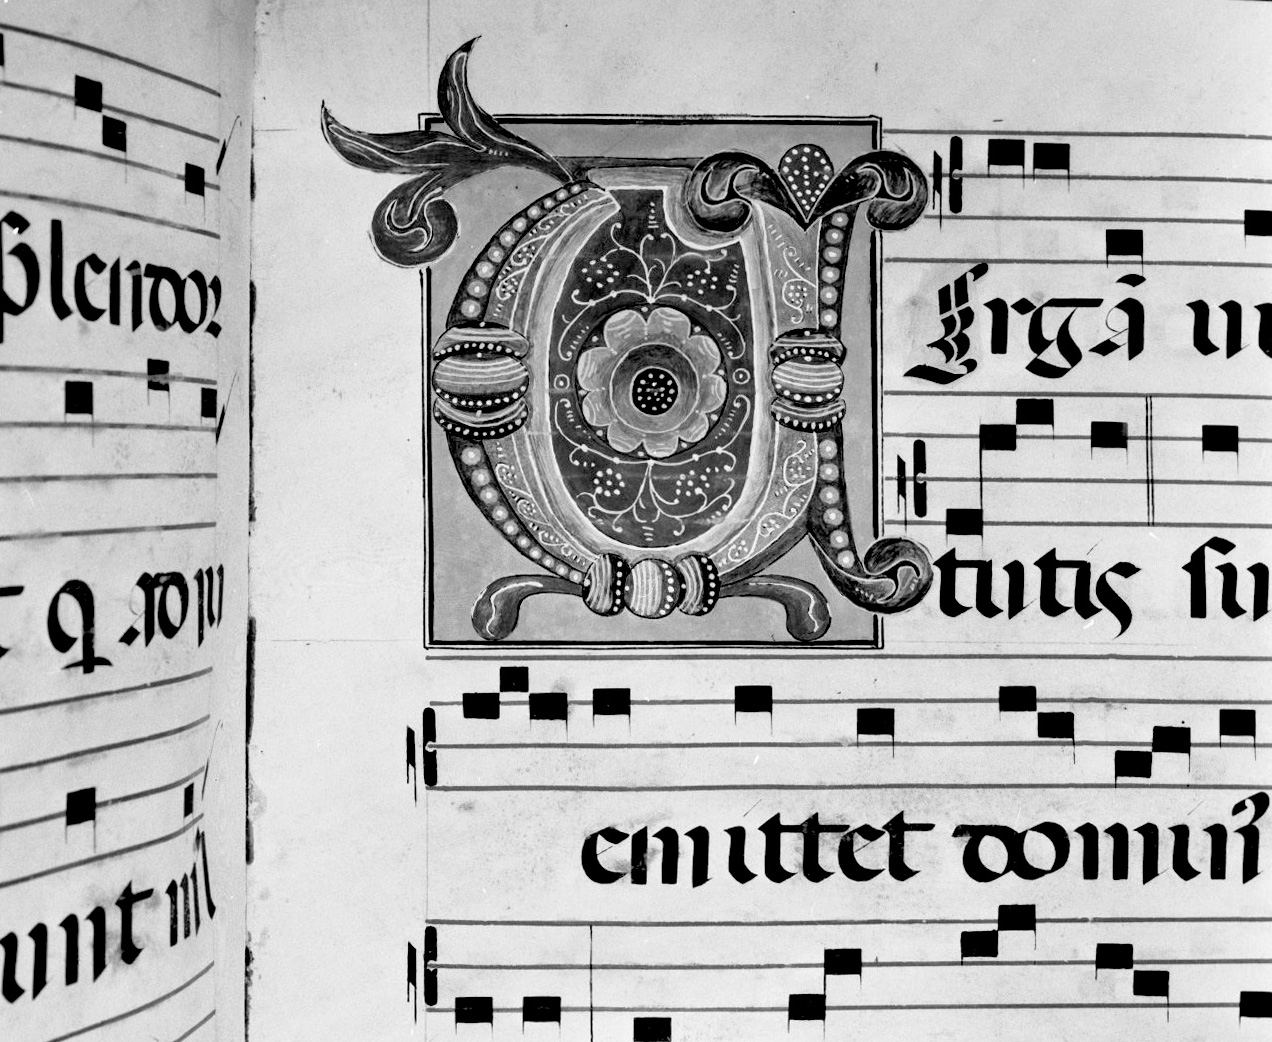 splendor
t q adiu
unt mi
V Ergā ui
tutis su
emittet domin̄